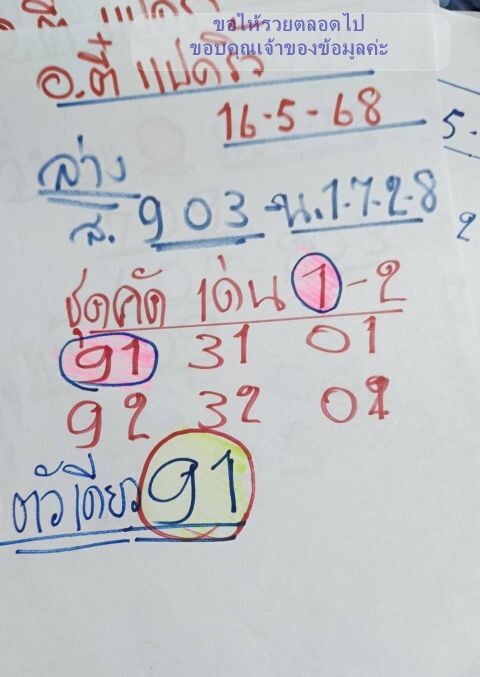 ขอให้รวยตลอดไป
ขอบคุณเจ้าของข้อมูลค่ะ
อ.ตี๋ แปดริ้ว
16-5-68
5-
ล่าง
ส. 903 -น.1-7-2-8
2
ชุดคัด เด่น 1-2
91 31 01
92 32 02
ตัวเดียว 91